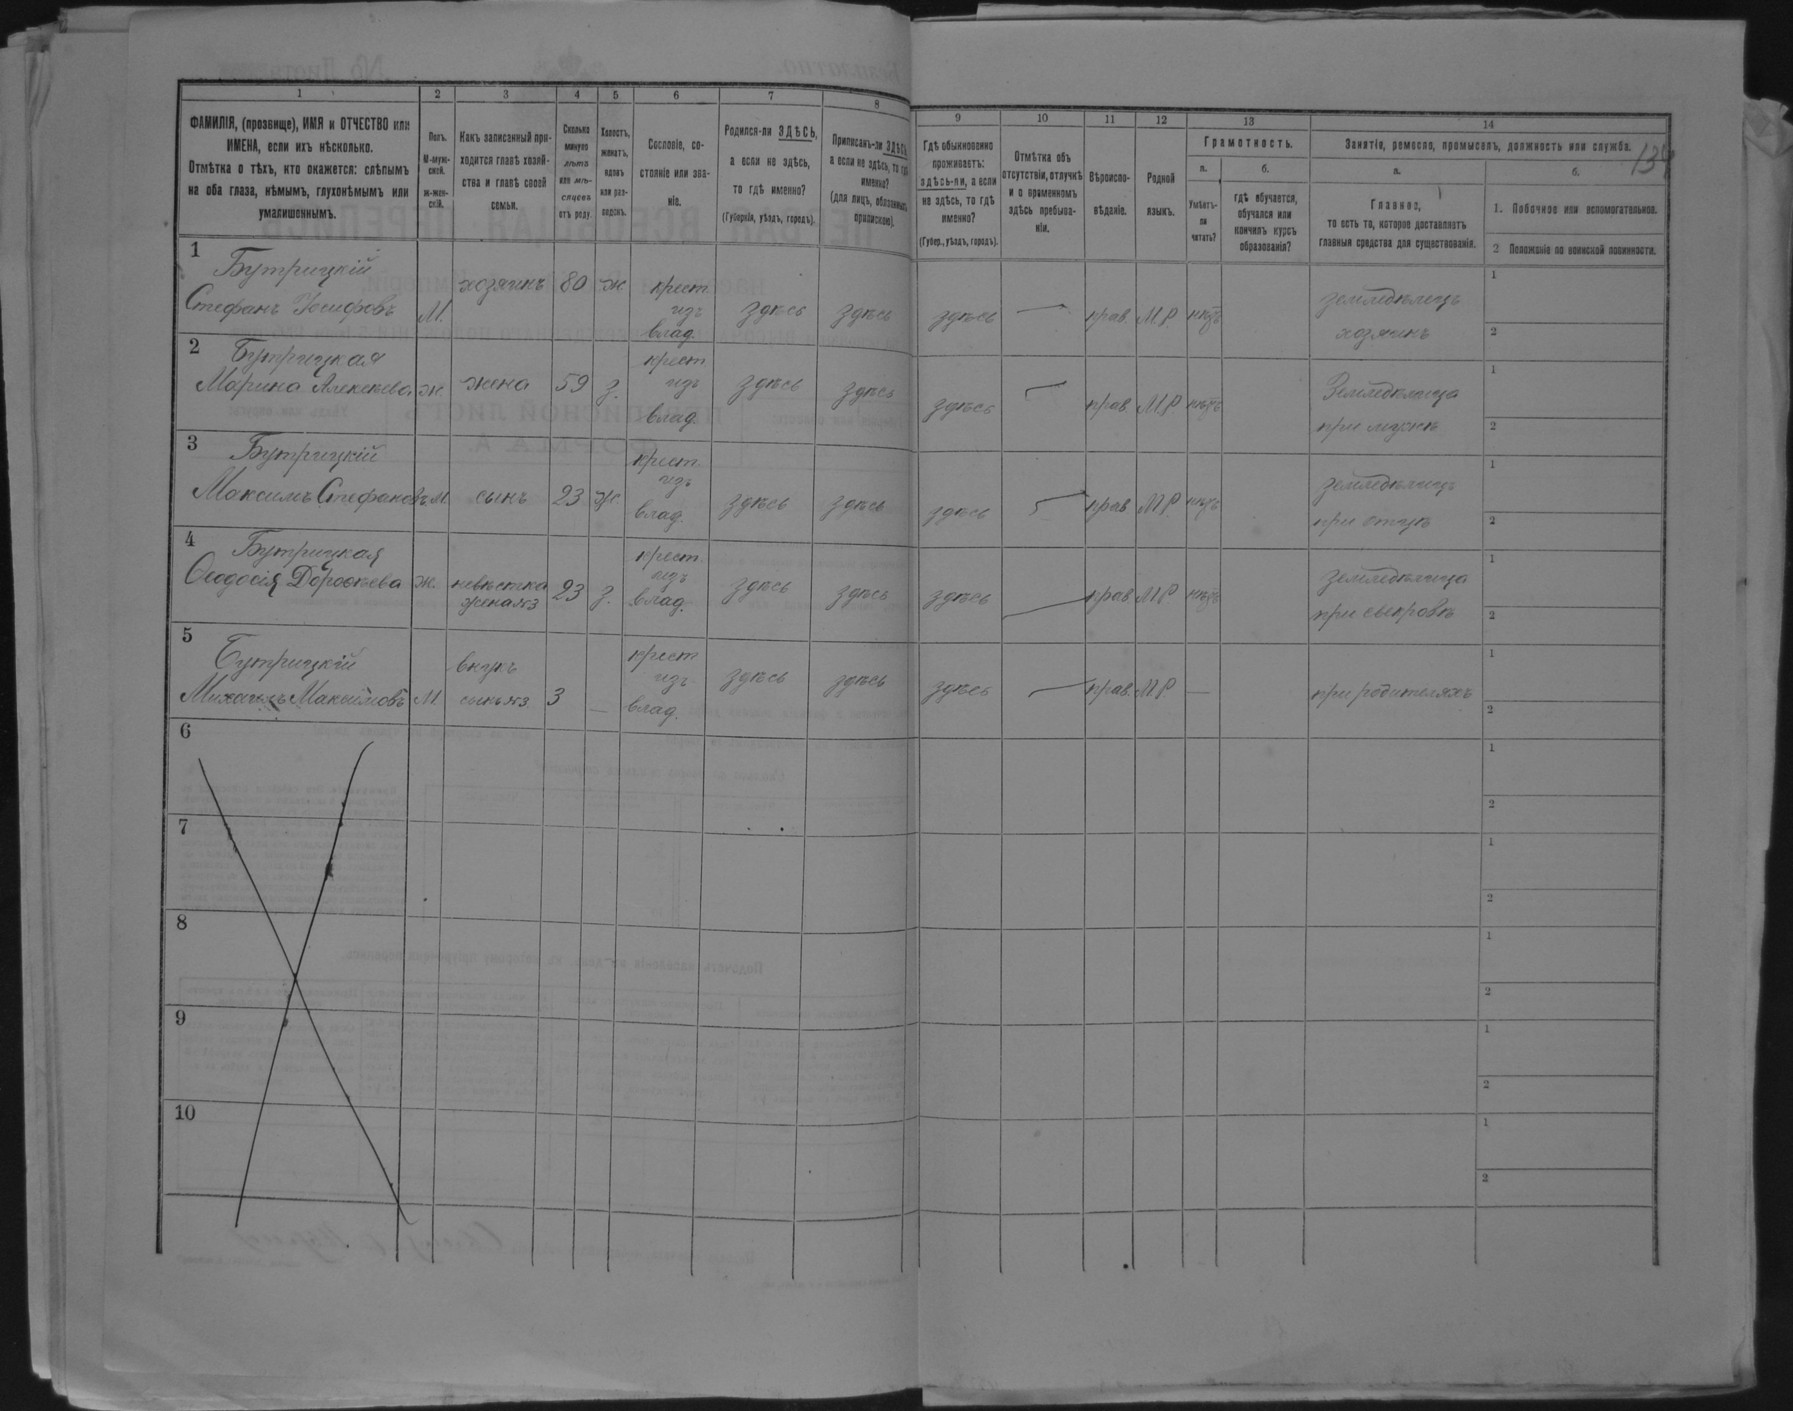 134
1 2 3 4 5 6 7 8 9 10 11 12 13 14
ФАМИЛІЯ, (прозвище), ИМЯ и ОТЧЕСТВО или
ИМЕНА, если ихъ нѣсколько.
Отмѣтка о тѣхъ, кто окажется: слѣпымъ
на оба глаза, нѣмымъ, глухонѣмымъ или
умалишеннымъ.
Полъ.
М-муж-
ской.
ж-жен-
скій.
Какъ записанный при-
ходится главѣ хозяй-
ства и главѣ своей
семьи.
Сколько
минуло
лѣтъ
или мѣ-
сяцевъ
отъ роду.
Холостъ,
женатъ,
вдовъ
или раз-
веденъ.
Сословіе, со-
стояніе или зва-
ніе.
Родился-ли ЗДѢСЬ,
а если не здѣсь,
то гдѣ именно?
(Губернія, уѣздъ, городъ).
Приписанъ-ли ЗДѢСЬ,
а если не здѣсь, то гдѣ
именно?
(для лицъ, обязанныхъ
припискою).
Гдѣ обыкновенно
проживаетъ:
здѣсь-ли, а если
не здѣсь, то гдѣ
именно?
(Губер., уѣздъ, городъ).
Отмѣтка объ
отсутствіи, отлучкѣ
и о временномъ
здѣсь пребыва-
ніи.
Вѣроиспо-
вѣданіе.
Родной
языкъ.
Грамотность.
а.
Умѣетъ-
ли
читать?
б.
гдѣ обучается,
обучался или
кончилъ курсъ
образованія?
Занятія, ремесло, промыселъ, должность или служба.
а.
Главное,
то есть то, которое доставляетъ
главныя средства для существованія.
б.
1. Побочное или вспомогательное.
2 Положеніе по воинской повинности.
1
Бутрицкій
Стефанъ Іосифовъ М. хозяинъ 80 ж крест.
изъ
влад. здѣсь здѣсь здѣсь — прав. МР. нѣтъ земледѣлецъ
хозяинъ
1
2
2
Бутрицкая
Марина Алексѣева ж. жена 59 з. крест.
изъ
влад. здѣсь здѣсь здѣсь — прав. МР нѣтъ Земледѣлица
при мужѣ
1
2
3
Бутрицкій
Максимъ Стефановъ М. сынъ 23 ж. крест.
изъ
влад. здѣсь здѣсь здѣсь — прав МР нѣтъ земледѣлецъ
при отцѣ
1
2
4
Бутрицкая
Ѳеодосія Дороѳеева ж. невѣстка
жена №3 23 з. крест.
изъ
влад. здѣсь здѣсь здѣсь — прав МР нѣтъ земледѣлица
при свекровѣ
1
2
5
Бутрицкій
Михаилъ Максимовъ М. внукъ
сынъ №3 3 — крест
изъ
влад. здѣсь здѣсь здѣсь — прав. МР. — при родителяхъ
1
2
6
1
2
7
1
2
8
1
2
9
1
2
10
1
2